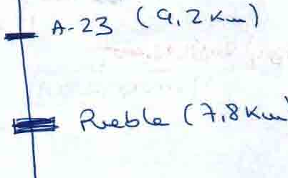 A-23 (9,2 Km)
Puebla (7,8 Km)